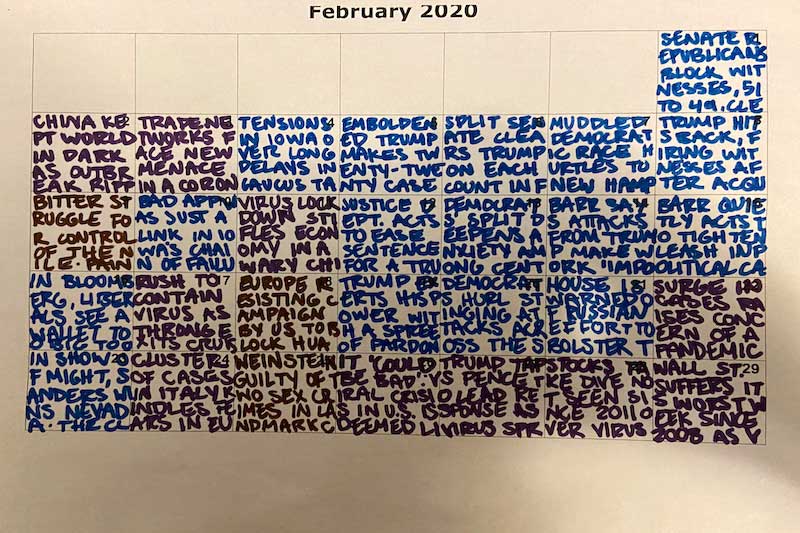 February 2020
1
SENATE R
EPUBLICANS
BLOCK WIT
NESSES, 51
TO 49. CLE
CHINA KE
PT WORLD
IN DARK
AS OUTBR
EAK RIPP
TRADE NE
TWORKS F
ACE NEW
MENACE
IN A CORON
TENSIONS
IN IOWA O
VER LONG
DELAYS IN
CAUCUS TA
EMBOLDEN
ED TRUMP
MAKES TW
ENTY-TWE
NTY CASE
SPLIT SEN
ATE CLEA
RS TRUMP
ON EACH
COUNT IN F
MUDDLED
DEMOCRAT
IC RACE H
URTLES TO
NEW HAMP
TRUMP HIT
S BACK, F
IRING WIT
NESSES AF
TER ACQU
BITTER ST
RUGGLE FO
R CONTROL
OF THE N
ILE. PAIN
BAD APP
AS JUST A
LINK IN IO
WA'S CHAI
N OF FAILU
VIRUS LOCK
DOWN STI
FLES ECON
OMY IN A
WARY CHI
JUSTICE
EPT. ACTS
TO EASE
SENTENCE
FOR A TRU
DEMOCRA
S SPLIT D
EEPENS A
NXIETY AM
ONG CENT
BARR SAY
S ATTACKS
FROM TRUMP
MAKE W
ORK 'IMPO
BARR QUIE
TLY ACTS T
O TIGHTEN
LEASH IN P
OLITICAL CA
IN BLOOMB
ERG, LIBER
ALS SEE A
WALLET TO
17
RUSH TO
CONTAIN
VIRUS AS
THRONG E
XITS CRUIS
EUROPE R
ESISTING C
AMPAIGN
BY U.S. TO B
LOCK HUA
TRUMP
ERTS HIS P
OWER WIT
H A SPREE
OF PARDON
DEMOCRAT
S HURL ST
INGING AT
TACKS ACR
OSS THE S
HOUSE IS
WARNED O
F RUSSIAN
EFFORT TO
BOLSTER T
SURGE IN
CASES RA
ISES CONC
ERN OF A
PANDEMIC
IN SHOW O
F MIGHT, S
ANDERS WI
NS NEVAD
A. THE CL
24
CLUSTER
OF CASES
IN ITALY K
INDLES FE
ARS IN EU
WEINSTEIN
GUILTY OF T
WO SEX CR
IMES IN LA
NDMARK C
IT 'COULD
BE BAD': V
IRAL CRISI
S IN U.S. IS
DEEMED LI
TRUMP TAP
S PENCE T
O LEAD RE
SPONSE AS
VIRUS SPR
STOCKS TA
KE DIVE NO
T SEEN SI
NCE 2011 O
VER VIRUS
29
WALL ST.
SUFFERS IT
S WORST W
EEK SINCE
2008 AS V